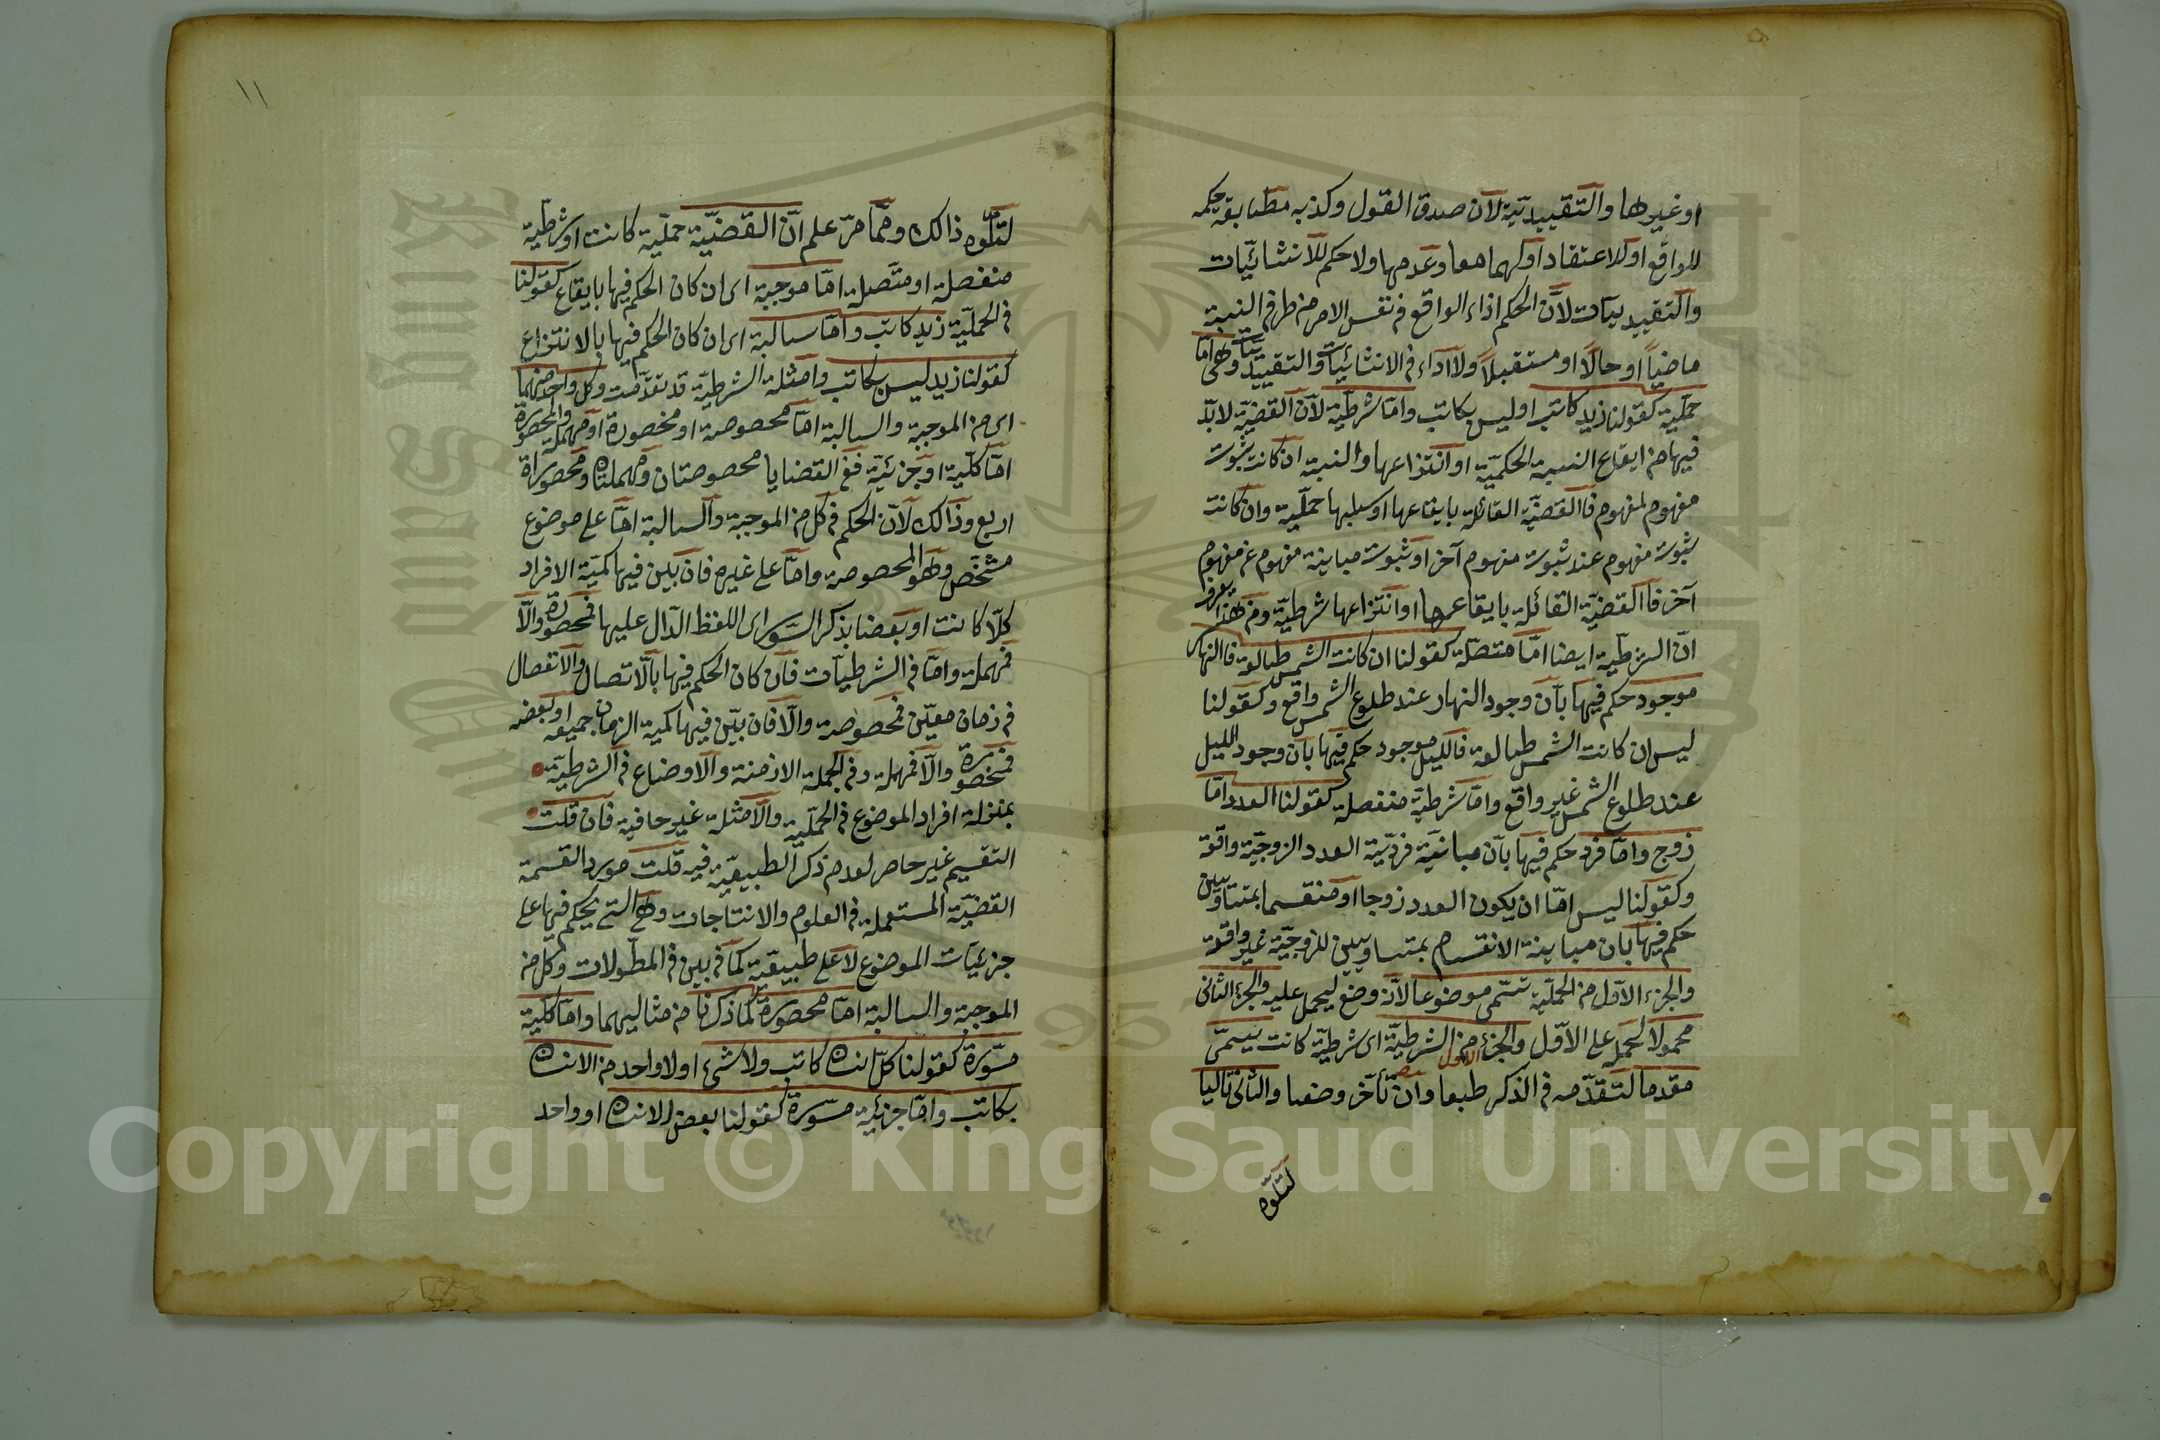 او غيرها والتقييديّة لانّ صدق القول وكذبه مطابقة حكمه
للواقع او للاعتقاد او لهما معا وعدمها ولا حكم للانشائيّات
والتقييديات لانّ الحكم اداء الواقع فى نفس الامر من طرفى النسبة
ماضياً او حالاً او مستقبلاً ولا اداء فى الانشائيّات والتقييديات وهى امّا
حمليّة كقولنا زيد كاتب او ليس بكاتب وامّا شرطيّة لانّ القضيّة لا بدّ
فيها من ايقاع النسبة الحكميّة او انتزاعها والنسبة ان كانت ثبوت
مفهوم لمفهوم فاالقضيّة القائلة بايقاعها او سلبها حمليّة وان كانت
ثبوت مفهوم عند ثبوت مفهوم آخر او ثبوت مباينة مفهوم عن مفهوم
آخر فاالقضيّة القائلة بايقاعها او انتزاعها شرطيّة ومن هذا يعرف
انّ الشرطية ايضا امّا متصلة كقولنا ان كانت الشمس طالعة فاالنهار
موجود حكم فيها بانّ وجود النهار عند طلوع الشمس واقع وكقولنا
ليس ان كانت الشمس طالعة فالليل موجود حكم فيها بانّ وجود الليل
عند طلوع الشمس غير واقع وامّا شرطيّة منفصلة كقولنا العدد امّا
زوج وامّا فرد حكم فيها بانّ مباينة فرديّة العدد الزوجيّة واقعة
وكقولنا ليس امّا ان يكون العدد زوجا او منقسما بمتساويين
حكم فيها بان مباينة الانقسام بمتساويين للزوجيّة غير واقعة
والجزء الاوّل من الحمليّة تسمّى موضوعا لانّه وضع ليحمل عليه والجزء الثانى
محمولا لحمله على الاوّل والجزء الاول من الشرطيّة اى شرطيّة كانت يسمّى
مقدما لتقدّمه فى الذكر طبعا وان تأخّر وضعا والثانى تاليا
لتلوّه
١١
لتلوّه ذالك وممّا مرّ علم انّ القضيّة حمليّة كانت او شرطيّة
منفصلة او متّصلة امّا موجبة اى ان كان الحكم فيها بايقاع كقولنا
فى الحمليّة زيد كاتب وامّا سالبة اى ان كان الحكم فيها بالانتزاع
كقولنا زيد ليس بكاتب وامثلة الشرطيّة قد تقدّمت وكل واحد منهما
اى من الموجبة والسالبة امّا مخصوصة او محصورة او مهملة والمحصورة
امّا كلّية او جزئيّة ففى القضايا مخصوصتان ومهملتان ومحصوراة
اربع وذالك لانّ الحكم فى كل من الموجبة والسالبة امّا على موضوع
مشخّص وهو المخصوصة وامّا على غيره فان بيّن فيها كميّة الافراد
كلّا كانت او بعضا بذكر السّور اى اللفظ الدّال عليها فمحصورة والّا
فمهملة وامّا فى الشرطيّات فان كان الحكم فيها باالاتصال والانفصال
فى زمان معيّن فمخصوصة والّا فان بيّن فيها كمية الزمان جميعه او بعضه
فمحصورة والّا فمهملة وفى الجملة الازمنة والاوضاع فى الشرطيّة
بمنزلة افراد الموضوع فى الحمليّة والامثلة غير خافية فان قلت
التقسيم غير حاصر لعدم ذكر الطبيعيّة فيه قلت مورد القسمة
القضيّة المستعملة فى العلوم والانتاجات وهى التى يحكم فيها على
جزئيّات الموضوع لا على طبيعية كما بيّن فى المطوّلات وكل من
الموجبة والسالبة امّا محصورة كما ذكرنا من مثاليهما وامّا كلية
مسّورة كقولنا كلّ انسان كاتب ولا شئ او لا واحد من الانسان
بكاتب وامّا جزئيّة مسّورة كقولنا بعض الانسان او واحد
Copyright © King Saud University